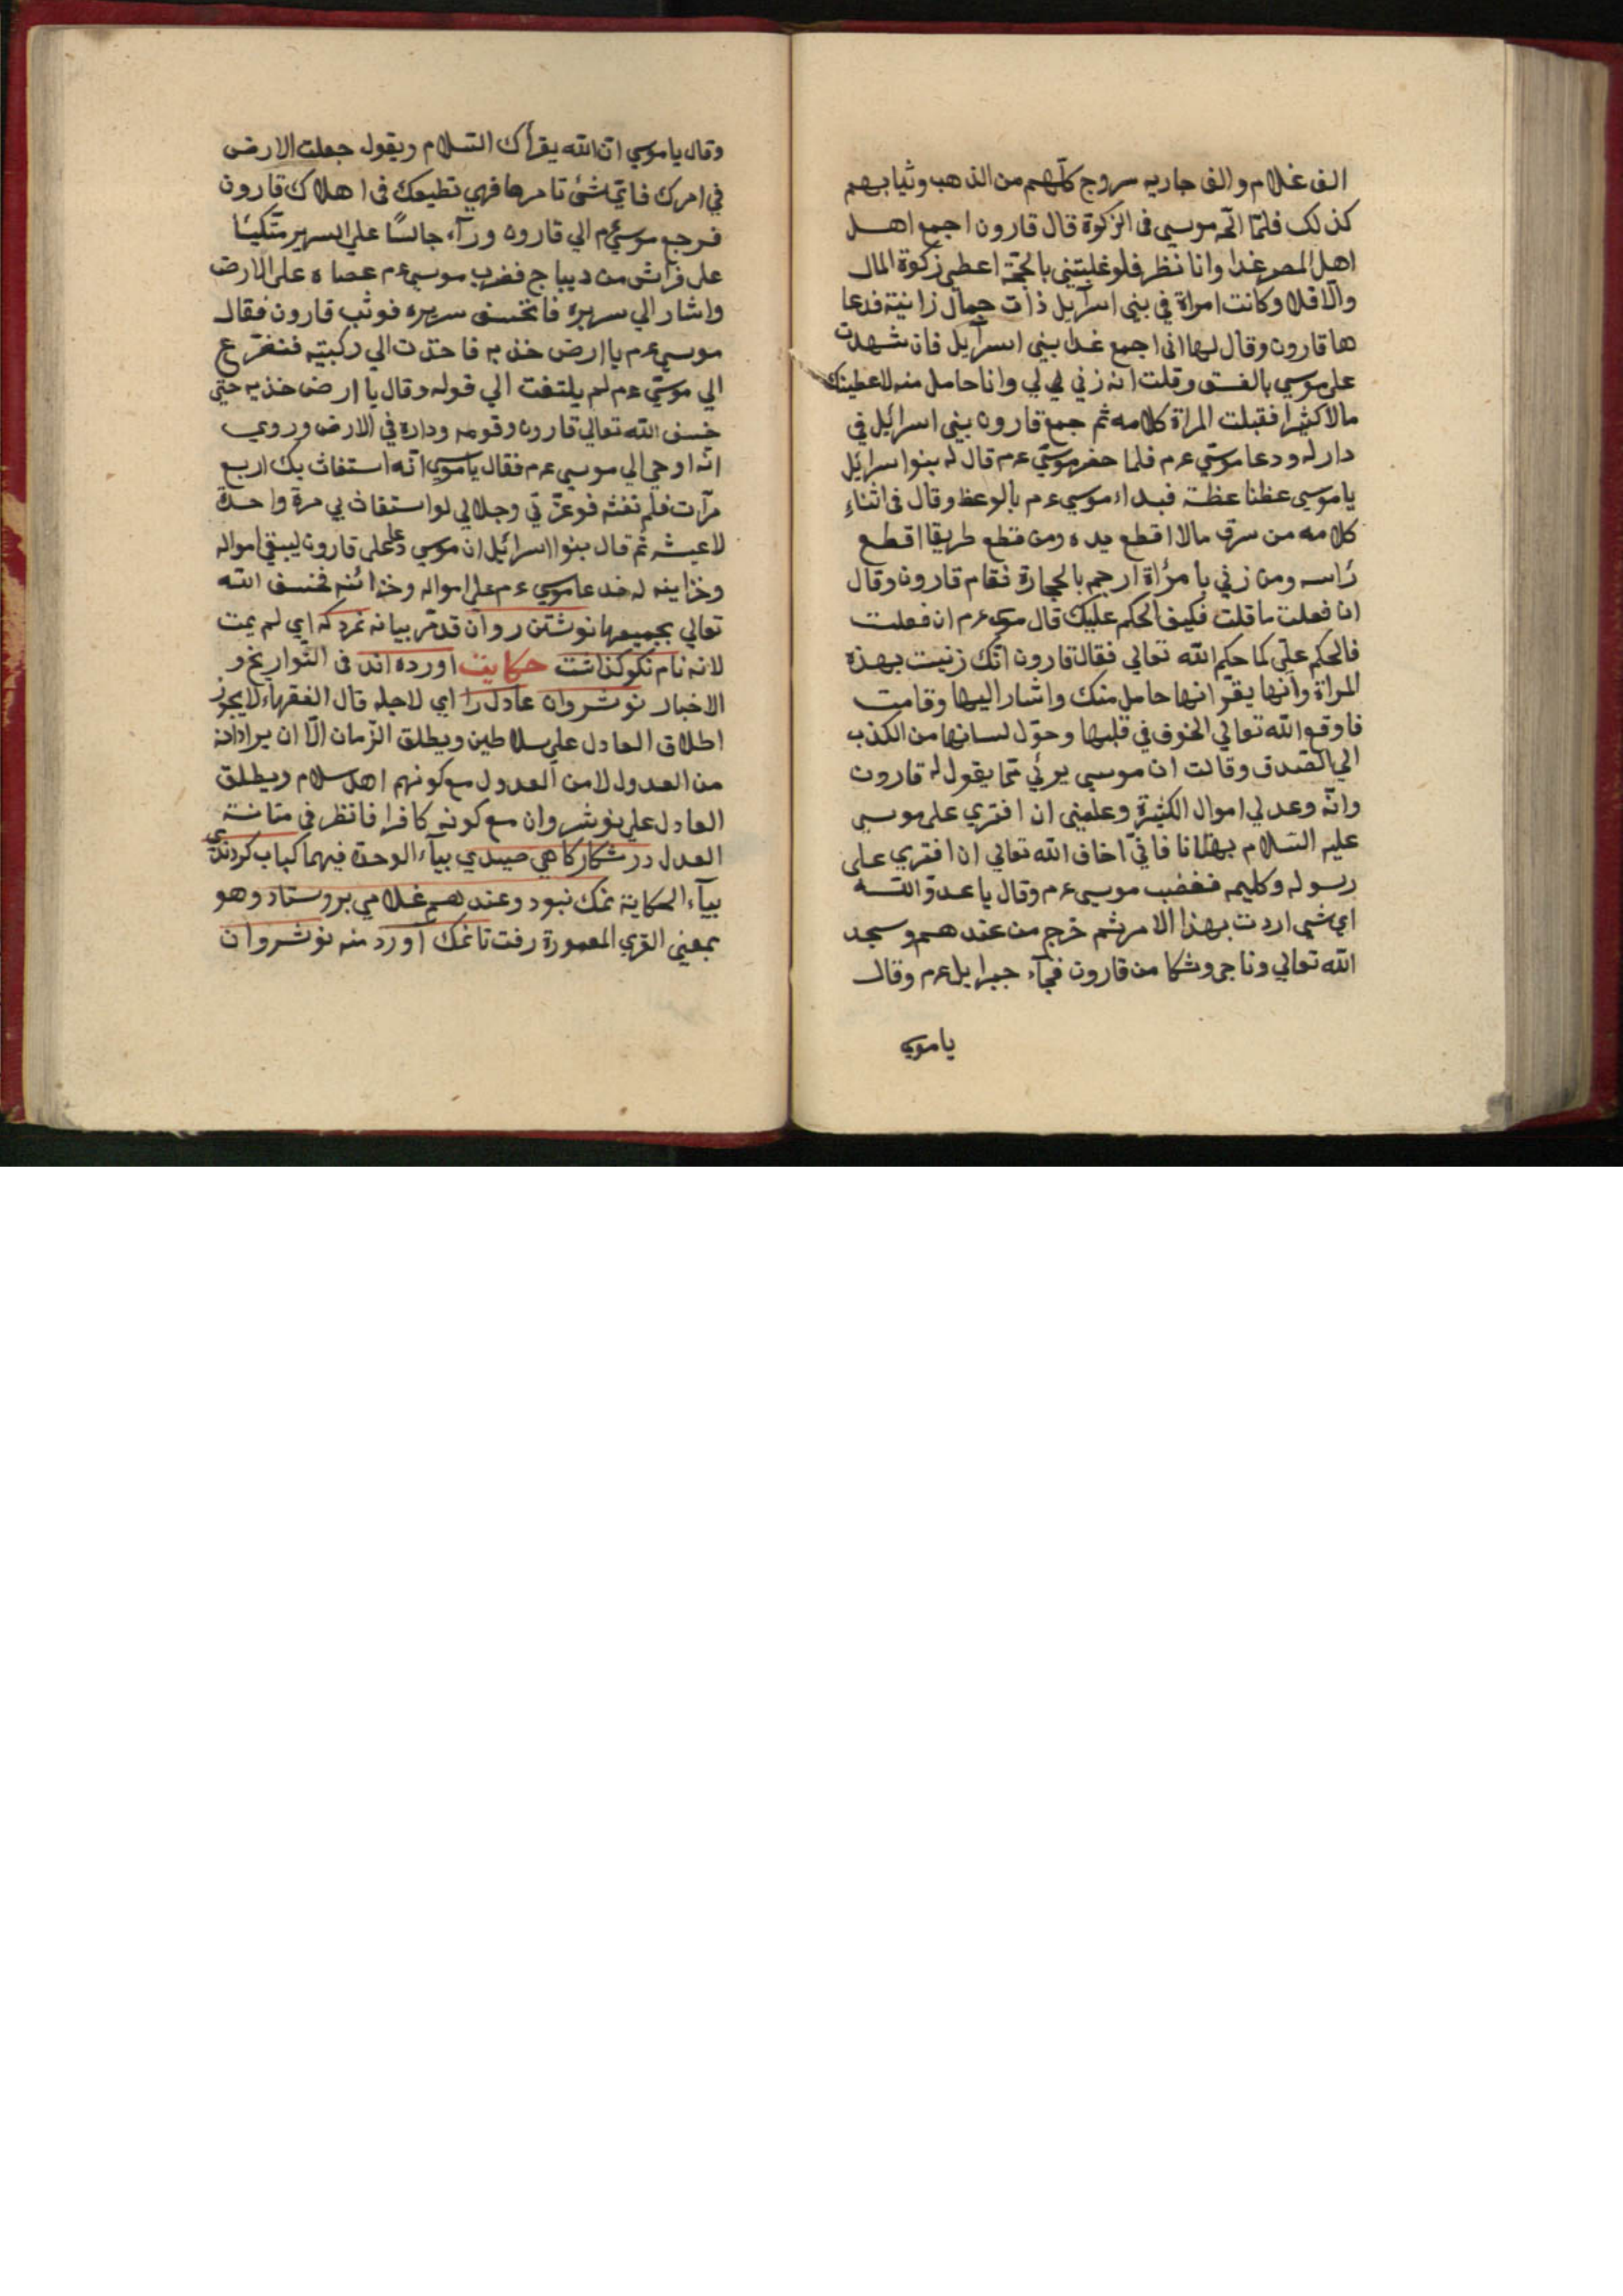 الف غلام والف جاريه سروج كلّهم من الذهب وثيابهم
كذلك فلمّا الحّ موسى فى الزكوة قال قارون اجمع اهل
اهل المصر غدا وانا نظر فلو غلبتنى بالحجّة اعطى زكوة المال
والّا فلا وكانت امراة في بنى اسرآيل ذات جمال زانية فدعا
ها قارون وقال لها انى اجمع غدا بنى اسرآيل فان شهدت
على موسى بالفسق وقلت انه زني لي وانا حامل منه لاعطينك
مالا كثيرا فقبلت المراة كلامه ثم جمع قارون بنى اسرائيل في
دار له ودعا موسّي ءم فلما حضر موسّي ءم قال له بنوا سرائيل
يا موسى عظنا عظة فبداء موسى ءم بالوعظ وقال فى اثناءِ
كلامه من سرق مالا اقطع يده ومن قطع طريقا اقطع
رٔاسه ومن زني بامرٔاة ارجم بالحجارة فقام قارون وقال
انا فعلت ما قلت فكيف الحكم عليك قال موسى ءم ان فعلت
فالحكم علىّ كما حكم الله تعالي فقال قارون انّك زنيت بهذه
المراة وانها يقرّ انها حامل منك واشار اليها وقامت
فاوقع الله تعالي الخوف في قلبها وحوّل لسانها من الكذب
الي الصّدق وقالت ان موسى برئي ممّا يقول له قارون
وانّه وعد لي اموال الكثيرة وعلمنى ان افتري على موسى
عليه السّلام بهتانا فانّي اخاف الله تعالي ان افتري على
رسوله وكليمه فغضب موسى ءم وقال يا عدوّ الله
اي شي اردت بهذا الامر ثم خرج من عندهم وسجد
الله تعالي وناجى وشكا من قارون فجآء جبرايل ءم وقال
يا موسى
وقال يا موسي انّ الله يقرأك السّلام ويقول جعلت الارض
في امرك فايّما شئ تامرها فهي تطيعك فى اهلاك قارون
فرجع موسي ءم الي قارون ورآء جالسًا علي السرير متّكيًا
على فراش من ديباج فضرب موسى ءم عصاه على الارض
واشار الي سريره فانخسف سريره فوثب قارون فقال
موسى ءم يا ارض خذ به فاحذت الي ركبتيه فتضرّع
الي موسّي ءم لم يلتفت الي قوله وقال يا ارض خذ به حتى
خسف الله تعالي قارون وقومه وداره في الارض وروي
انّه اوحي الي موسى ءم فقال يا موسى انّه استغاث بك اربع
مرّآت فلم تغثه فوعزّتي وجلالي لو استغاث بي مرة واحدة
لاغيثه ثم قال بنوا اسرائيل ان موسي دعا على قارون ليبقي امواله
وخزاينه له فدعا موسي ءم على امواله وخزائنه فخسف الله
تعالي بجميعها نوشتن روان قد مّر بيانه نمرد كه اي لم يمت
لانه نام نكو كذاشت حكايت اورده اند فى التّواريخ و
الاخبار نوشروان عادل را اي لاجله قال الفقهاء لا يجوز
اطلاق العادل على سلاطين ويطلق الزّمان الّا ان يراد انه
من العدول لا من العدول مع كونهم اهل سلام ويطلق
العادل على نوشروان مع كونه كافرا فانظر فى متانة
العدل در شكار كاهي صيدي بيآء الوحدة فيهما كباب كردندي
بيآء الحكاية نمك نبود وعند هم غلامي بروستاد وهو
بمعنى القري المعمورة رفت تا نمك آورد منه نوشروان